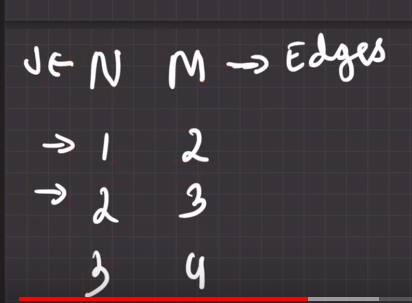 V ← N M → Edges
→ 1 2
→ 2 3
3 4